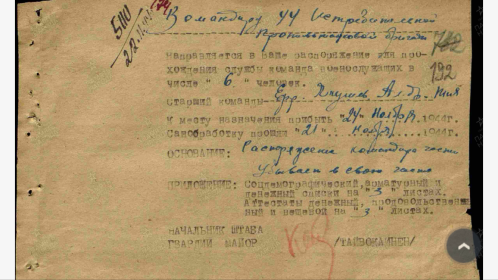 Командиру 44 Истребительной
Противотанковой Бригады
Направляется в Ваше распоряжение для про-
хождения службы команда военослужащих в
числе " 6 " человек.
Старший команды
К месту назначения прибыть "24" Ноября 1944г.
Санобработку прошли "21" Ноября 1944г.
ОСНОВАНИЕ: Распоряжение командира части
Убываем в свою часть
ПРИЛОЖЕНИЕ: Соцдемографический, арматурный и
денежный списки на " 3 " листах.
Аттестаты денежный, продовольствен
ный и вещевой на " 3 " листах.
НАЧАЛЬНИК ШТАБА
ГВАРДИИ МАЙОР /ТАЙВОКАЙНЕН/
192